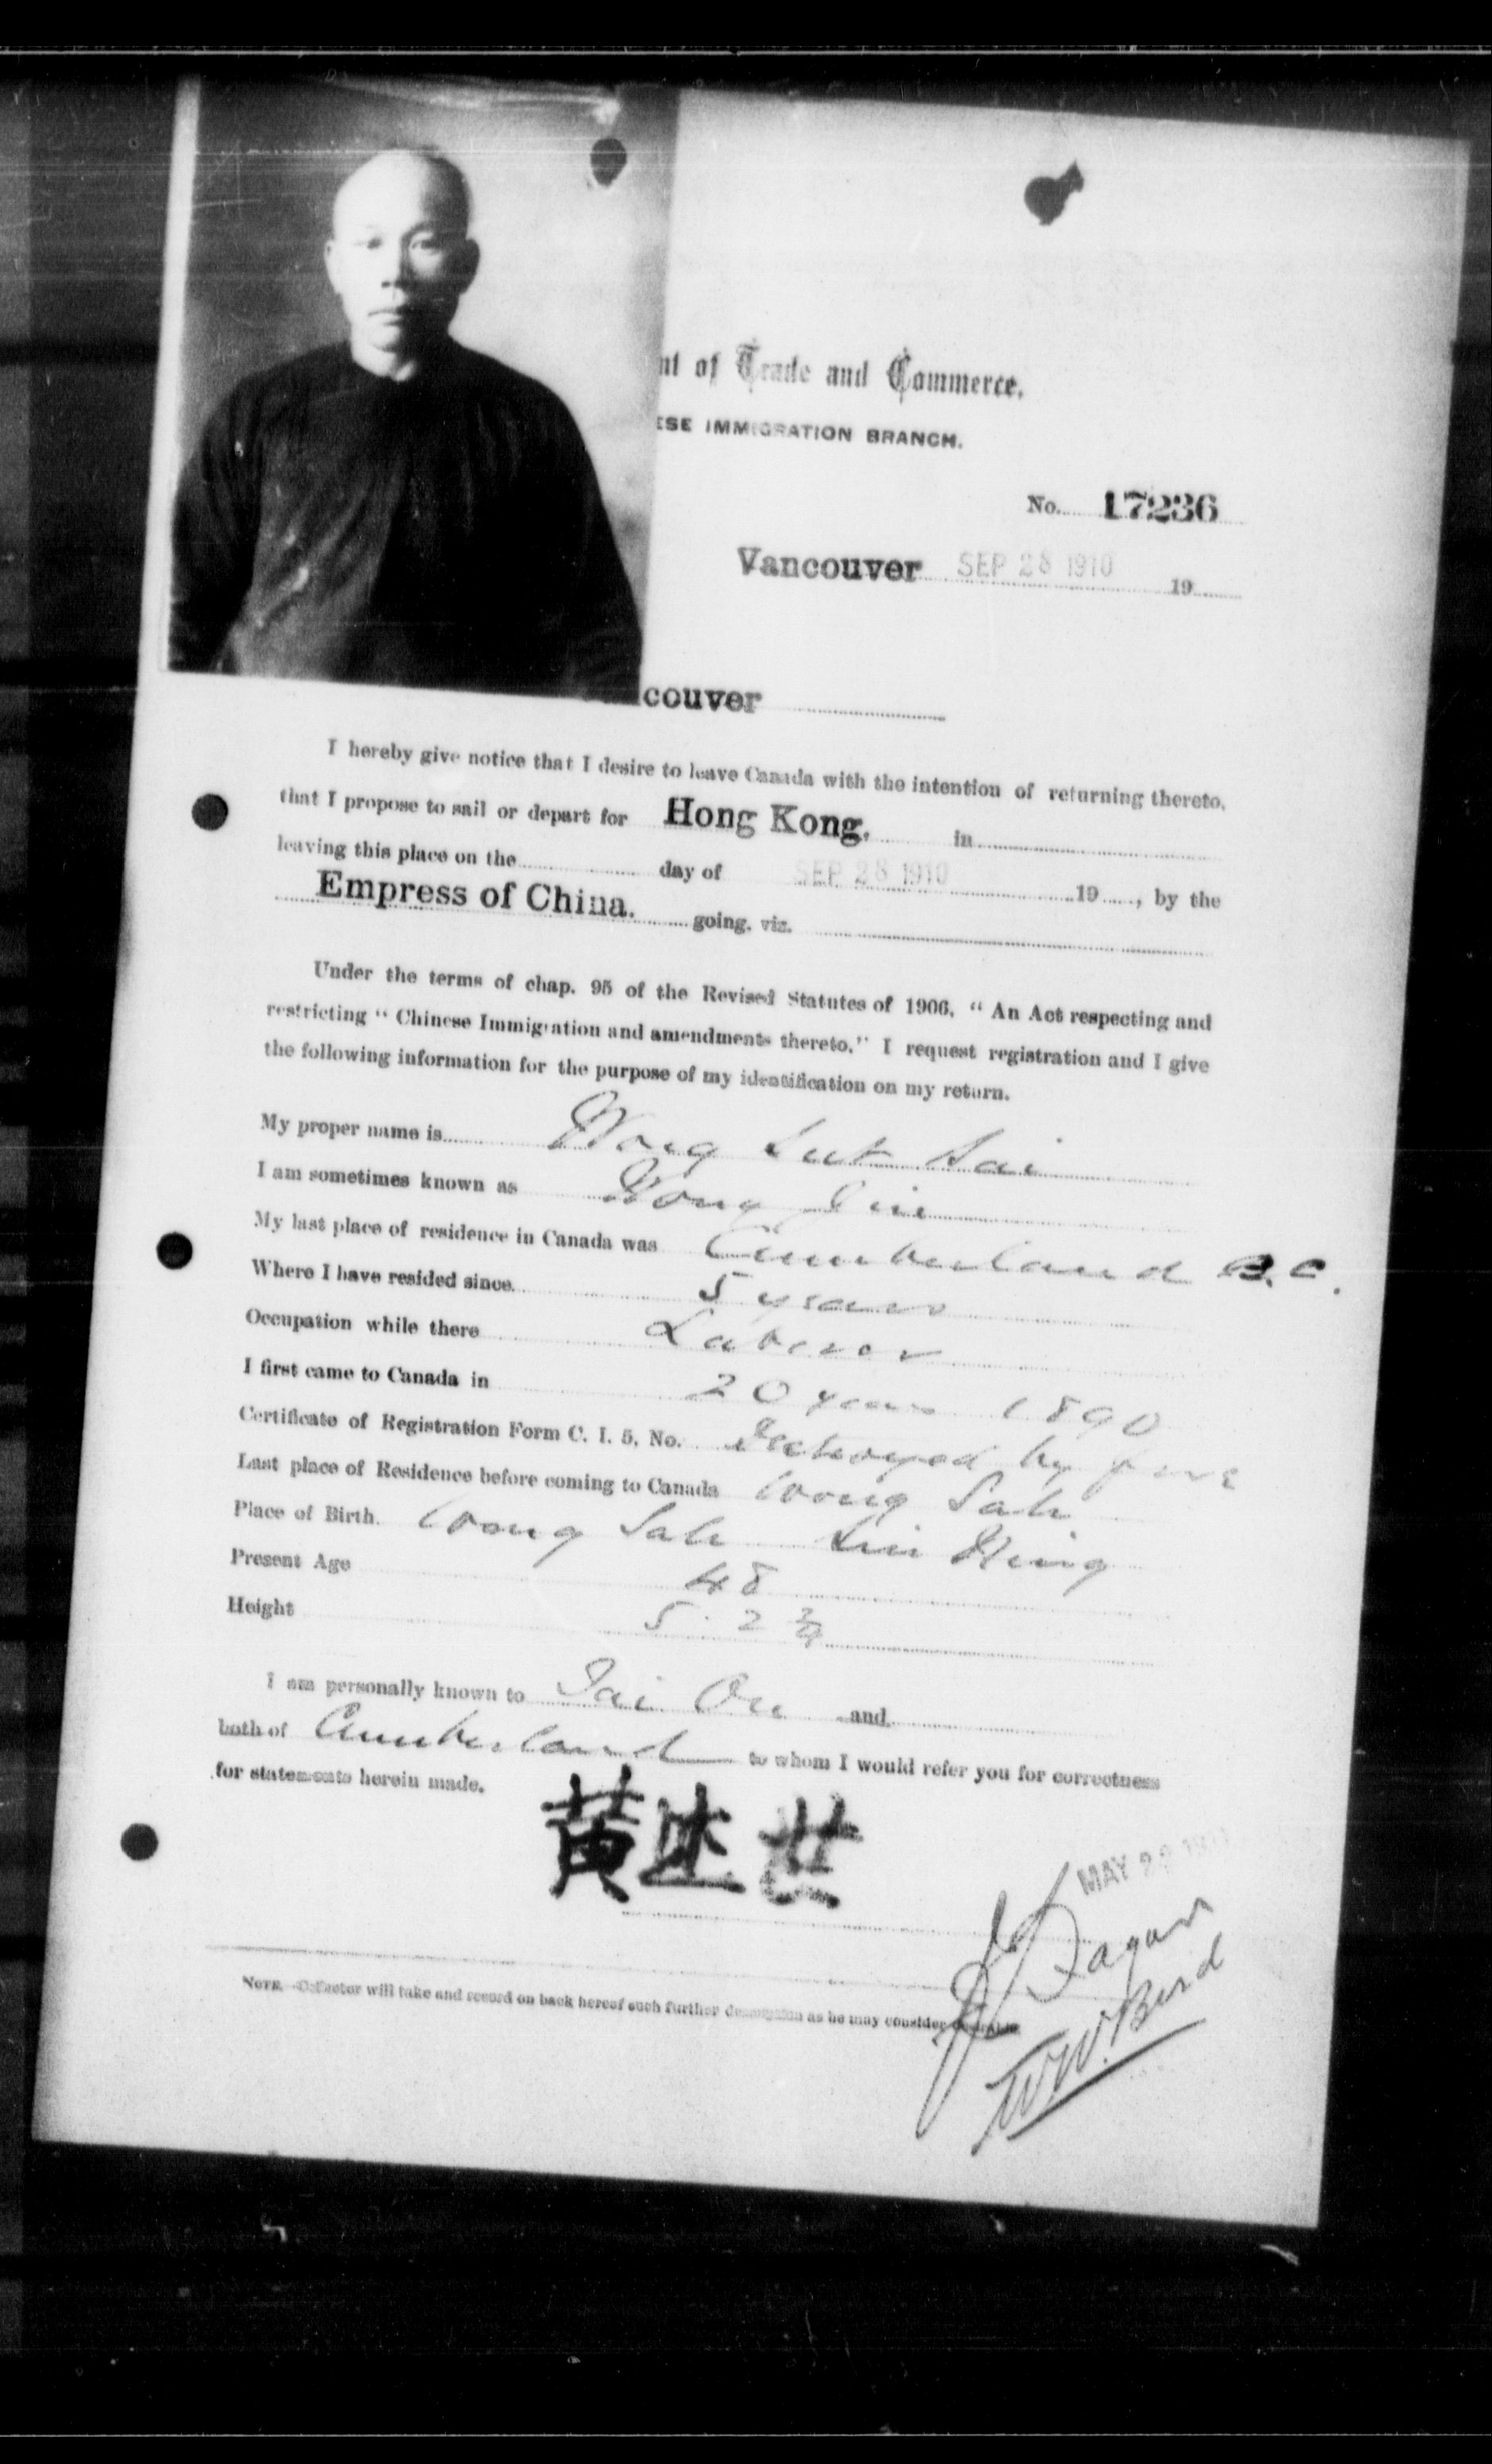 nt of Trade and Commerce.
ESE IMMIGRATION BRANCH.
No. 17236
Vancouver SEP 28 1910 19
couver
I hereby give notice that I desire to leave Canada with the intention of returning thereto,
that I propose to sail or depart for Hong Kong. in
leaving this place on the day of SEP 28 1910 19, by the
Empress of China. going. viz.
Under the terms of chap. 95 of the Revised Statutes of 1906, “ An Act respecting and
restricting “ Chinese Immigration and amendments thereto.” I request registration and I give
the following information for the purpose of my identification on my return.
My proper name is Wong Luk Sai
I am sometimes known as Wong
My last place of residence in Canada was Cumberland B.C.
Where I have resided since 5 years
Occupation while there Laborer
I first came to Canada in 20 years 1890
Certificate of Registration Form C. I. 5, No. Destroyed by fire
Last place of Residence before coming to Canada Wong Sah
Place of Birth. Wong Sah Sin Hing
Present Age 48
Height 5. 2 3/4
I am personally known to Tai On and
both of Cumberland to whom I would refer you for correctness
for statements herein made.
黃 世
MAY 1911
NOTE.—Collector will take and record on back hereof such further description as he may consider desirable
W.W. Bird